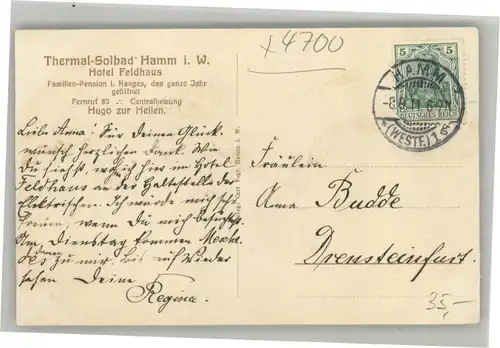 Thermal-Solbad Hamm i. W.
Hotel Feldhaus
Familien-Pension I. Ranges, das ganze Jahr
geöffnet
Fernruf 80 .:. Centralheizung
Hugo zur Hellen.
x4700
5 5
DEUTSCHES REICH
HAMM
-8.9.11. 6-7N
(WESTF.) 1
Liebe Anna! Für Deinen Glück-
wunsch herzlichen Dank. Wie
Du siehst, ich hier im Hotel
Feldhaus an der Haltestelle der
Elektrischen. Ich würde mich sehr
freuen, wenn Du mich besuchtest.
Am Dienstag kommen
zu mir. Bis auf Wieder
sehen Deine
Regina.
Fräulein
Anna Budde
Drensteinfurt.
35,-